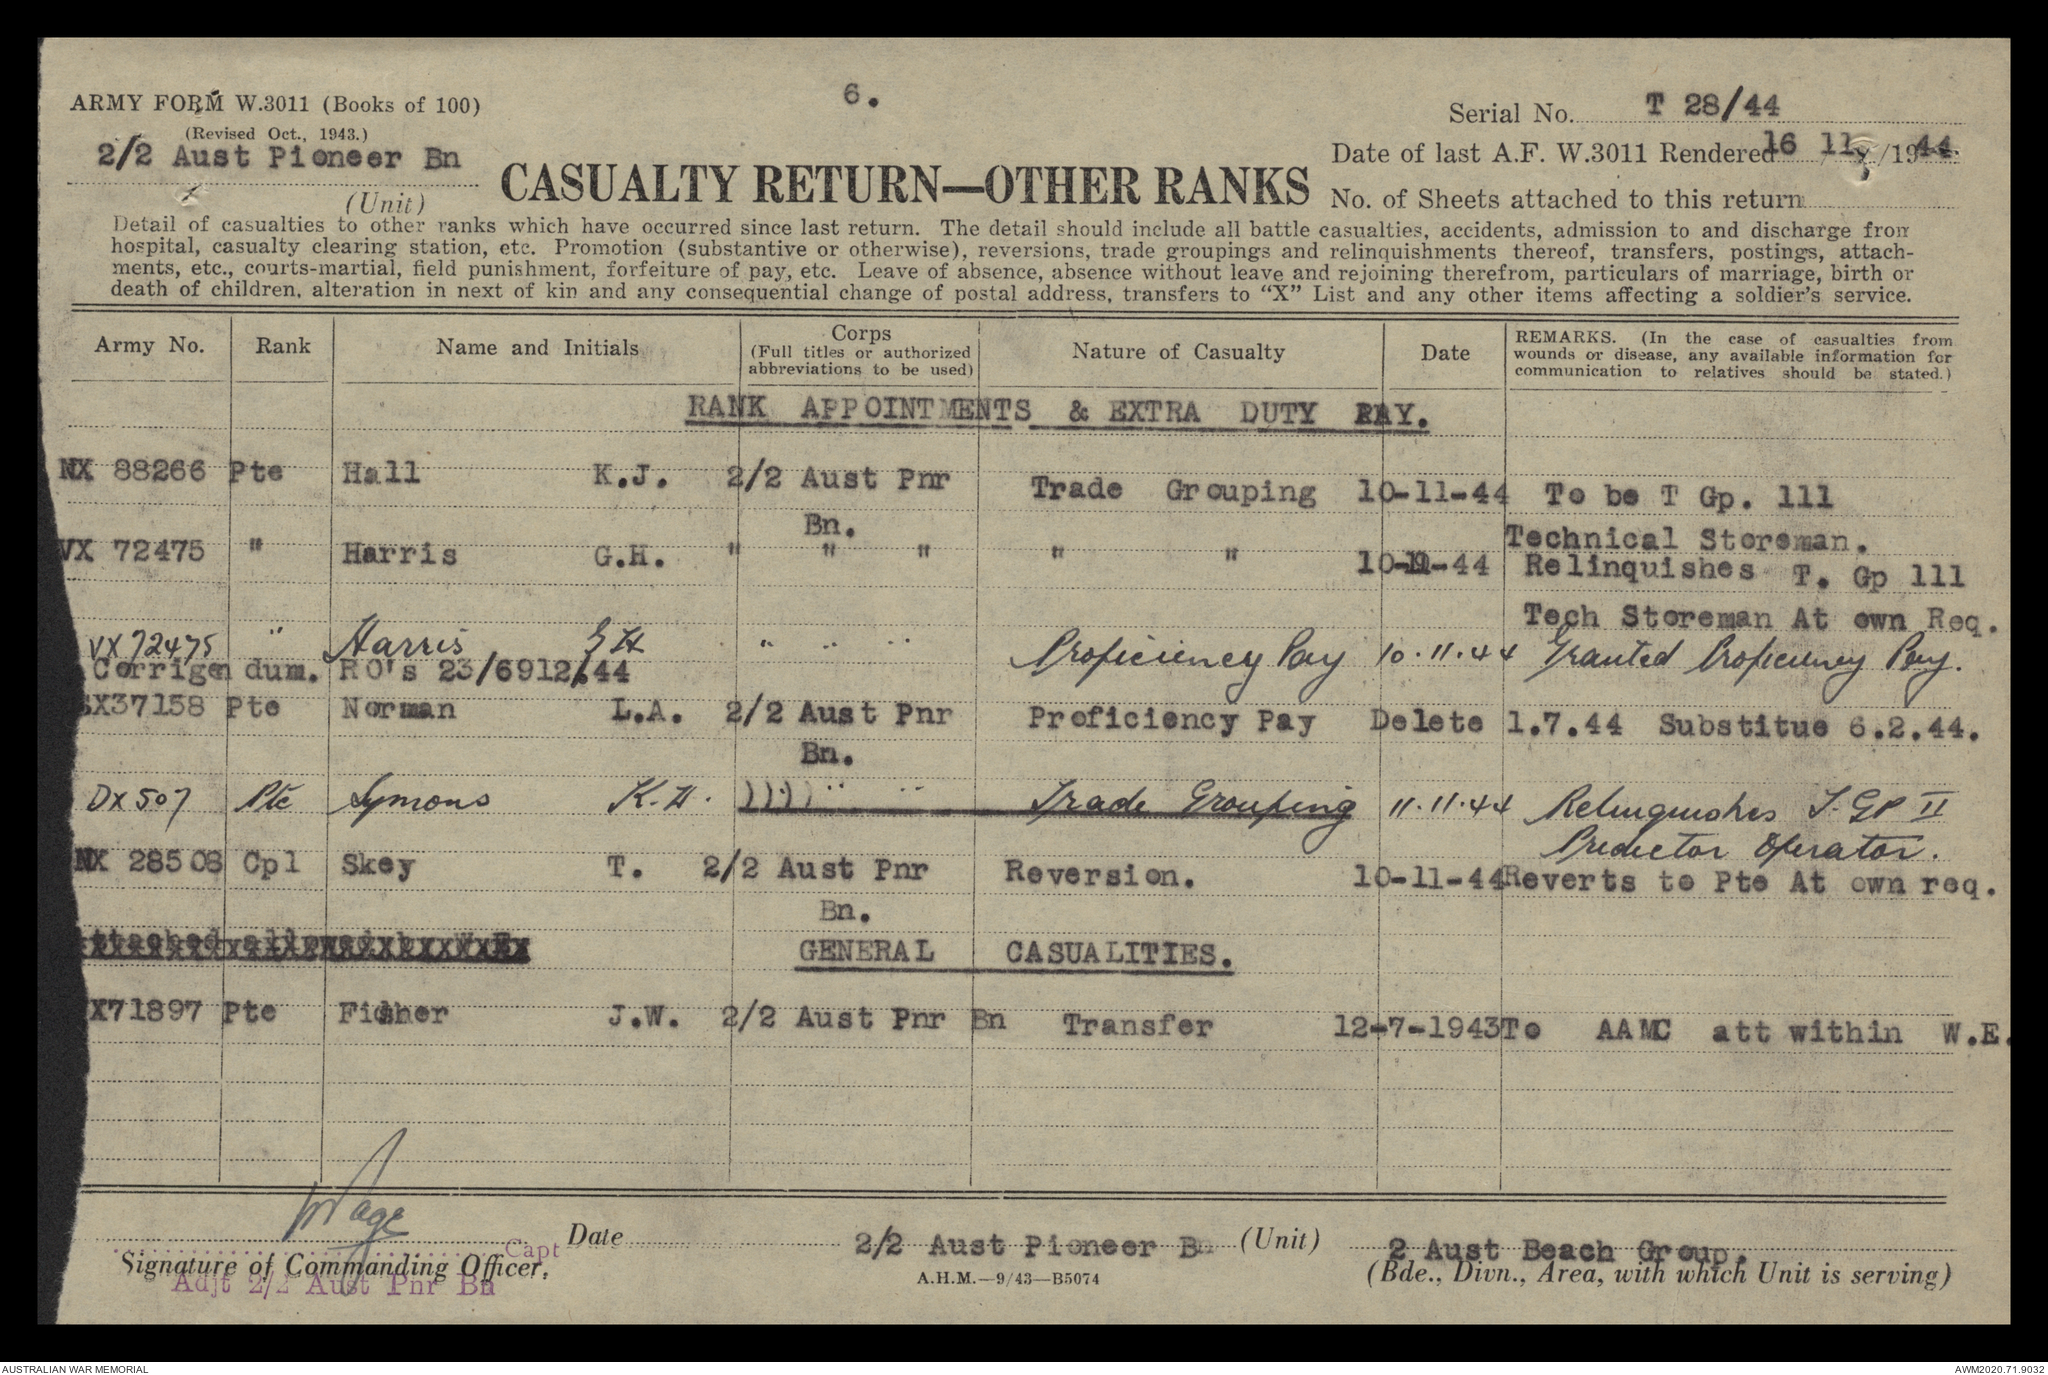 6.
ARMY FORM W.3011 (Books of 100)
(Revised Oct., 1943.)
2/2 Aust Pioneer Bn
(Unit)
CASUALTY RETURN—OTHER RANKS
Serial No. T 28/44
Date of last A.F. W.3011 Rendered 16 11 /1944
No. of Sheets attached to this return
Detail of casualties to other ranks which have occurred since last return. The detail should include all battle casualties, accidents, admission to and discharge from
hospital, casualty clearing station, etc. Promotion (substantive or otherwise), reversions, trade groupings and relinquishments thereof, transfers, postings, attach-
ments, etc., courts-martial, field punishment, forfeiture of pay, etc. Leave of absence, absence without leave and rejoining therefrom, particulars of marriage, birth or
death of children, alteration in next of kin and any consequential change of postal address, transfers to "X" List and any other items affecting a soldier's service.
Army No. Rank Name and Initials Corps (Full titles or authorized abbreviations to be used) Nature of Casualty Date REMARKS. (In the case of casualties from wounds or disease, any available information for communication to relatives should be stated.)
RANK APPOINTMENTS & EXTRA DUTY PAY.
NX 88266 Pte Hall K.J. 2/2 Aust Pnr Trade Grouping 10-11-44 To be T Gp. 111
Bn. Technical Storeman.
VX 72475 " Harris G.H. " " " " " 10-11-44 Relinquishes T. Gp 111
Tech Storeman At own Req.
VX72475 " Harris G H " " " Proficiency Pay 10.11.44 Granted Proficiency Pay.
Corrigendum. RO's 23/6912/44
SX37158 Pte Norman L.A. 2/2 Aust Pnr Proficiency Pay Delete 1.7.44 Substitue 6.2.44.
Bn.
DX507 Pte Symons K.H. )))) " " Trade Grouping 11.11.44 Relinquishes T. GP II
Predictor Operator.
NX 28508 Cpl Skey T. 2/2 Aust Pnr Reversion. 10-11-44 Reverts to Pte At own req.
Bn.
GENERAL CASUALITIES.
X71897 Pte Fisher J.W. 2/2 Aust Pnr Bn Transfer 12-7-1943 To AAMC att within W.E.
Page
Capt
Signature of Commanding Officer.
Adjt 2/2 Aust Pnr Bn
Date
2/2 Aust Pioneer Bn (Unit)
A.H.M.—9/43—B5074
2 Aust Beach Group.
(Bde., Divn., Area, with which Unit is serving)
AUSTRALIAN WAR MEMORIAL AWM2020.71.9032